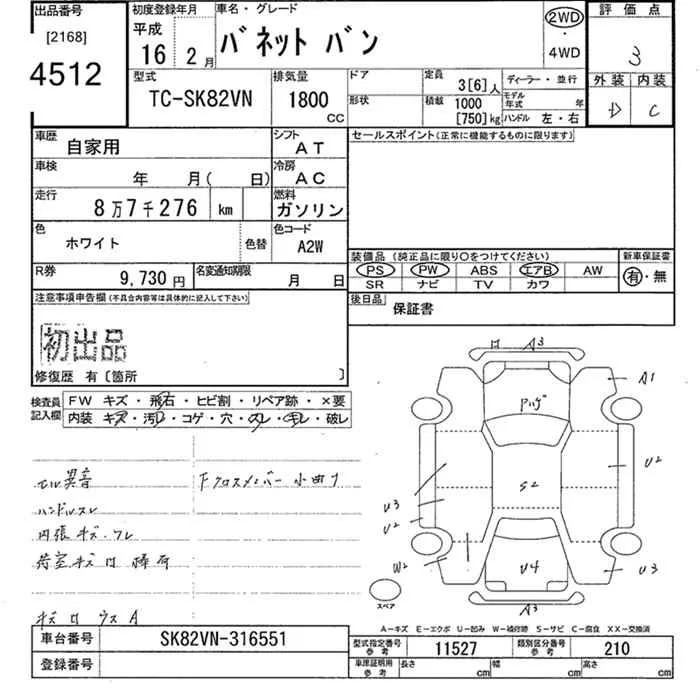 出品番号
[2168]
4512
初度登録年月
平成
16 2 月
車名・グレード
バネット バン
2WD
・
4WD
評価点
3
外装 内装
D C
型式
TC-SK82VN
排気量
1800
CC
ドア
形状
定員
3[6]人
積載 1000
[750]kg
ディーラー・並行
モデル年式 年
ハンドル 左・右
車歴
自家用
シフト
AT
車検
年 月( 日)
冷房
AC
走行
8万7千276 km
燃料
ガソリン
色
ホワイト
色替
色コード
A2W
R券
9,730 円
名変通知期限
月 日
セールスポイント(正常に機能するものに限ります)
装備品 (純正品に限り○をつけてください)
PS PW ABS エアB AW
SR ナビ TV カワ
新車保証書
有・無
後日品
保証書
注意事項申告欄(不具合内容等は具体的に記入して下さい)
初出品
修復歴 有〔箇所 〕
検査員記入欄
FW キズ・飛石・ヒビ割・リペア跡・×要
内装 キズ・汚レ・コゲ・穴・スレ・モレ・破レ
セル異音
Fクロスメンバー小曲り
ハンドルスレ
内張キズ・ワレ
荷室キズ
A3
A1
U2
S2
U3
U2
W2
U4
U3
A3
スペア
A-キズ E-エクボ U-凹み W-補修跡 S-サビ C-腐食 XX-交換済
車台番号
SK82VN-316551
登録番号
型式指定番号
参考
11527
類別区分番号
参考
210
車庫証明用
参考
長さ cm
幅 cm
高さ cm